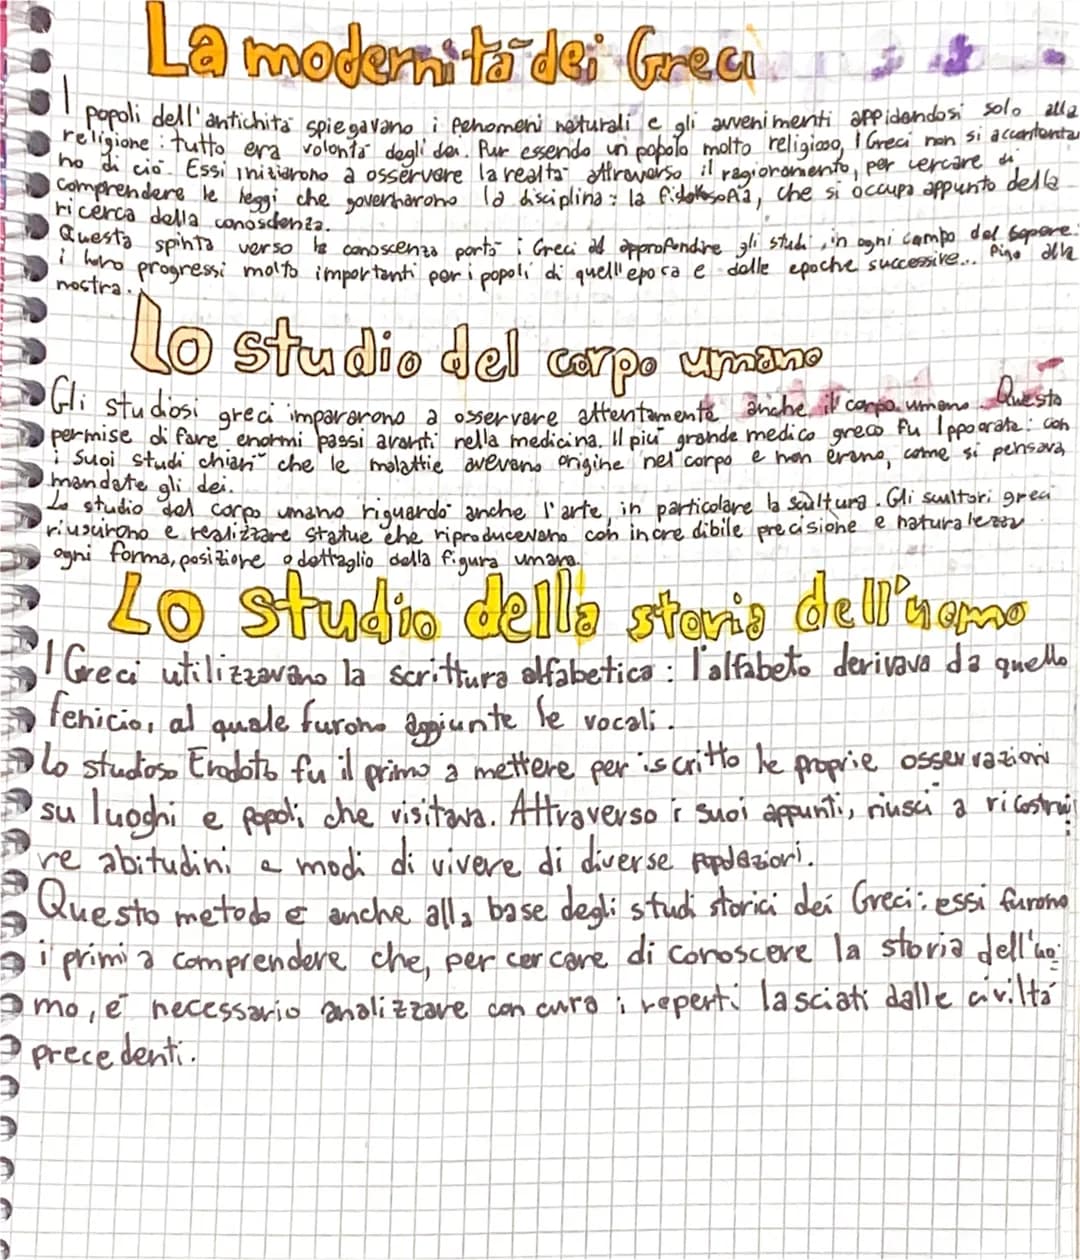 La modernità dei Greci
I popoli dell'antichità spiegavano i fenomeni naturali e gli avvenimenti affidandosi solo alla
religione: tutto era volontà degli dei. Pur essendo un popolo molto religioso, I Greci non si accontenta
no di ciò. Essi iniziarono a osservare la realtà attraverso il ragionamento, per cercare di
comprendere le leggi che governarono la disciplina: la filosofia, che si occupa appunto della
ricerca della conoscenza.
Questa spinta verso la conoscenza portò i Greci ad approfondire gli studi, in ogni campo del sapere:
i loro progressi molto importanti per i popoli di quell'epoca e dalle epoche successive... fino alla
nostra.
Lo studio del corpo umano
Gli studiosi greci impararono a osservare attentamente anche il corpo umano. Questo
permise di fare enormi passi avanti nella medicina. Il più grande medico greco fu Ippocrate: con
i suoi studi chiarì che le malattie avevano origine nel corpo e non erano, come si pensava,
mandate gli dei.
Lo studio del corpo umano riguardò anche l'arte, in particolare la scultura. Gli scultori greci
riuscirono e realizzare statue che riproducevano con incredibile precisione e naturalezza
ogni forma, posizione o dettaglio della figura umana.
Lo studio della storia dell'uomo
I Greci utilizzavano la scrittura alfabetica: l'alfabeto derivava da quello
fenicio, al quale furono aggiunte le vocali.
Lo studioso Erodoto fu il primo a mettere per iscritto le proprie osservazioni
su luoghi e popoli che visitava. Attraverso i suoi appunti, riuscì a ricostrui
re abitudini e modi di vivere di diverse popolazioni.
Questo metodo è anche alla base degli studi storici dei Greci: essi furono
i primi a comprendere che, per cercare di conoscere la storia dell'uo
mo, è necessario analizzare con cura i reperti lasciati dalle civiltà
precedenti.